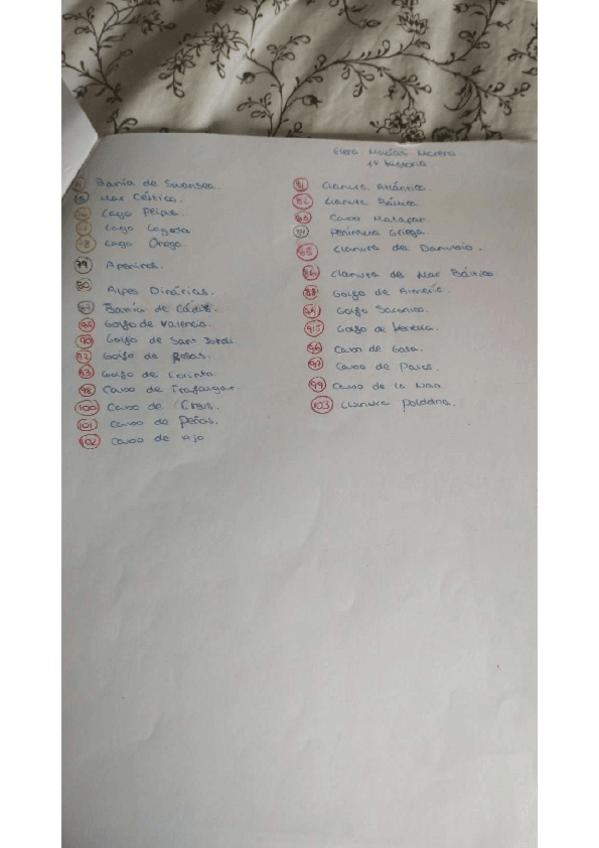 Macías Moreno
1º Historia
Bahía de Swansea.
Mar Céltico.
Lago Peipus.
Lago Lagoda
78 Lago Onega.
79 Apeninos.
80 Alpes Dináricos.
Bahía de Cádiz.
Golfo de Valencia.
90 Golfo de Sant Jordi
92 Golfo de Rosas.
93 Golfo de Corinto.
98 Cabo de Trafalgar.
100 Cabo de Creus.
101 Cabo de Peñas.
102 Cabo de Ajo
81 Llanura Atlántica.
82 Llanura Báltica.
83 Cabo Matapán.
Península Griega.
85 Llanura del Danubio.
86 Llanura del Mar Báltico
Golfo de Almería.
Golfo Sarónico.
Golfo de Venecia.
96 Cabo de Gata.
97 Cabo de Palos.
99 Cabo de la Nao.
103 Llanura